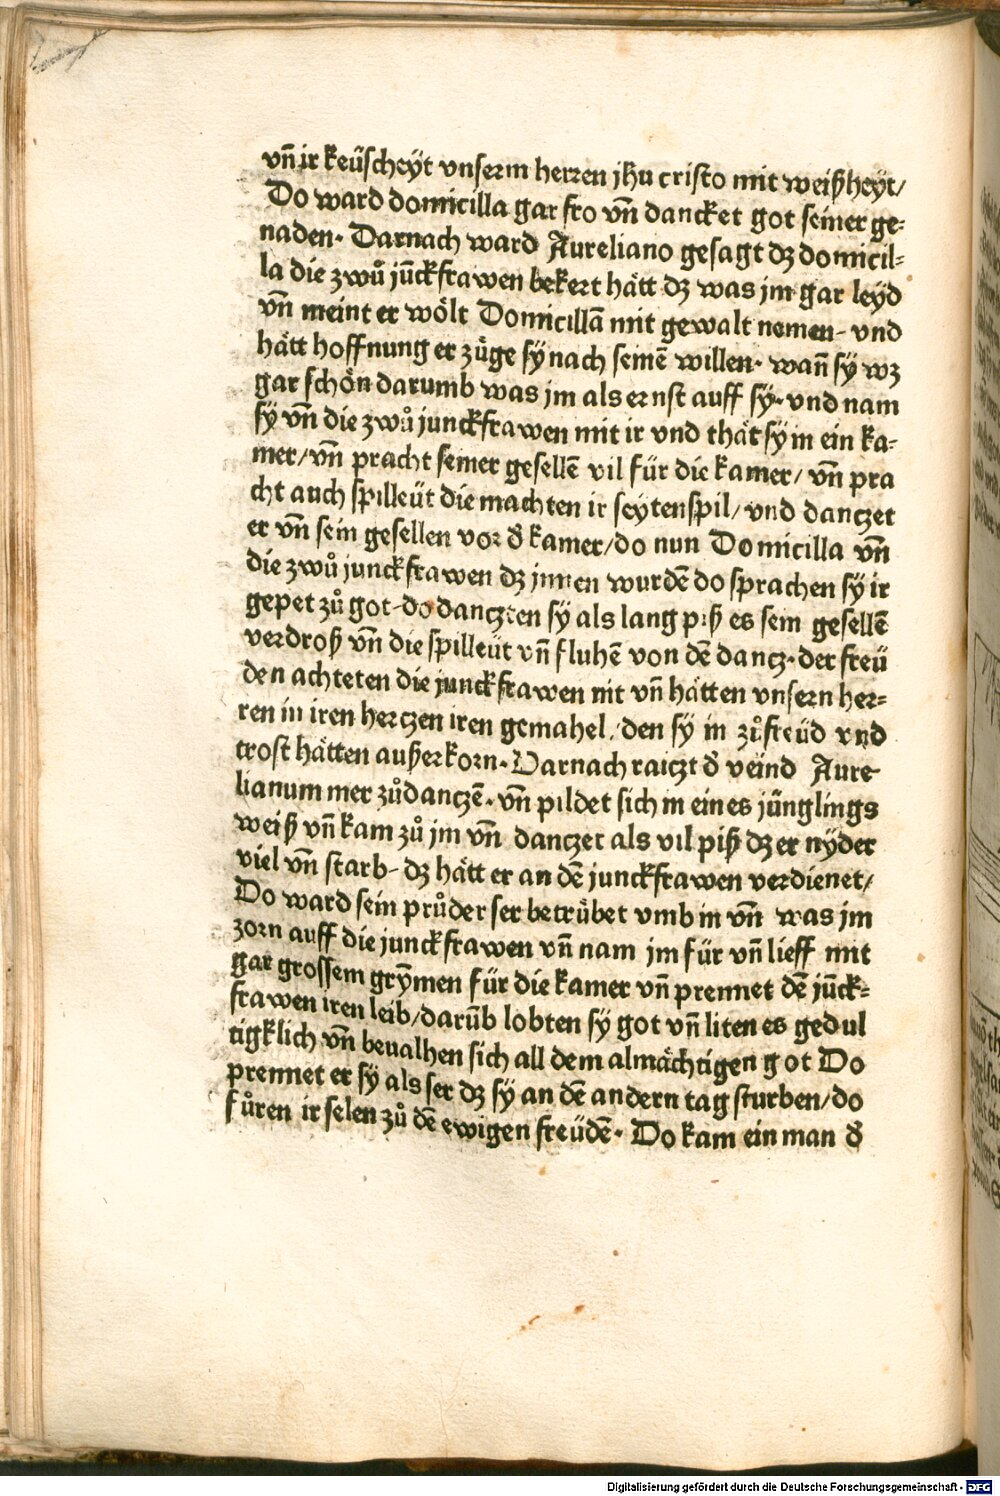 vn̄ ir keüscheÿt vnserm herren jhū cristo mit weißheÿt/
Do ward domicilla gar fro vn̄ dancket got seiner ge⸗
naden· Darnach ward Aureliano gesagt dz domicil⸗
la die zwů jūckfrawen bekert hätt dz was jm gar leÿd
vn̄ meint er wölt Domicillā mit gewalt nemen- vnd
hätt hoffnung er züge sÿ nach seinē willen· wan̄ sÿ wz
gar schön darumb was jm als ernst auff sÿ· vnd nam
sÿ vn̄ die zwů junckfrawen mit ir vnd thät sÿ in ein ka⸗
mer/ vn̄ pracht seiner gesellē vil für die kamer/ vn̄ pra
cht auch spilleüt die machten ir seytenspil/ vnd danczet
er vn̄ sein gesellen vor d̄ kamer/ do nun Domicilla vn̄
die zwů junckfrawen dz jnnen wurdē do sprachen sÿ ir
gepet zů got- do danczten sÿ als lang piß es sein gesellē
verdroß vn̄ die spilleüt vn̄ fluhē von dē dancz· der freü
den achteten die junckfrawen nit vn̄ hätten vnsern her⸗
ren in iren herczen iren gemahel/ den sÿ in zů freüd vnd
trost hätten außerkorn· Darnach raiczt d̄ veind Aure
lianum mer zů danczē· vn̄ pildet sich in eines jünglings
weiß vn̄ kam zů jm vn̄ danczet als vil piß dz er nÿder
viel vn̄ starb- dz hätt er an dē junckfrawen verdienet/
Do ward sein průder ser betrübet vmb in vn̄ was jm
zorn auff die junckfrawen vn̄ nam jm für vn̄ lieff mit
gar grossem grȳmen für die kamer vn̄ prennet dē jūck⸗
frawen iren leib/ darūb lobten sÿ got vn̄ liten es gedul
tigklich vn̄ beualhen sich all dem almächtigen got Do
prennet er sÿ als ser dz sÿ an dē andern tag sturben/ do
fůren ir selen zů dē ewigen freüdē· Do kam ein man d̄
Digitalisierung gefördert durch die Deutsche Forschungsgemeinschaft - DFG